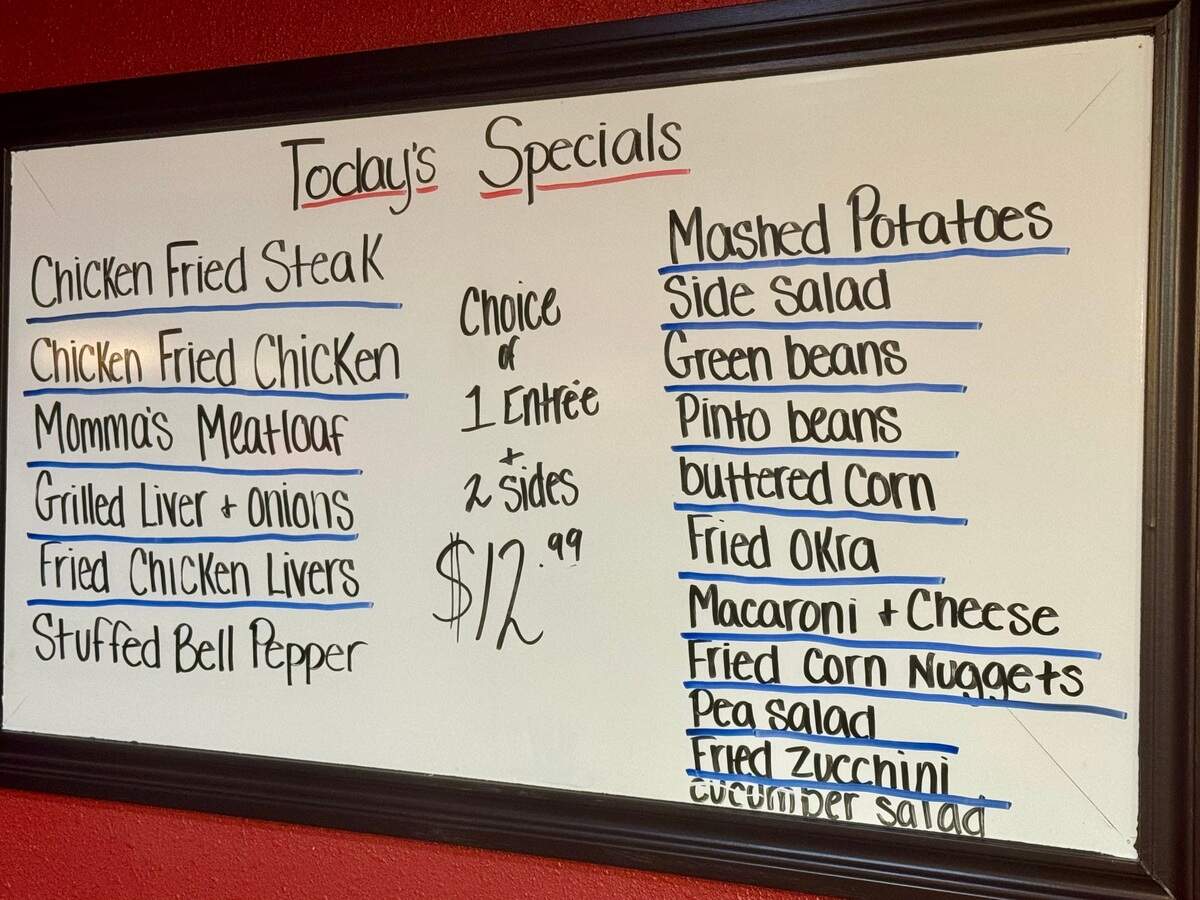 Today's Specials
Chicken Fried Steak
Chicken Fried Chicken
Momma's Meatloaf
Grilled Liver + onions
Fried Chicken Livers
Stuffed Bell Pepper
Choice
of
1 Entrée
+
2 sides
$12.99
Mashed Potatoes
Side Salad
Green beans
Pinto beans
buttered Corn
Fried Okra
Macaroni + Cheese
Fried Corn Nuggets
Pea salad
Fried Zucchini
cucumber salad